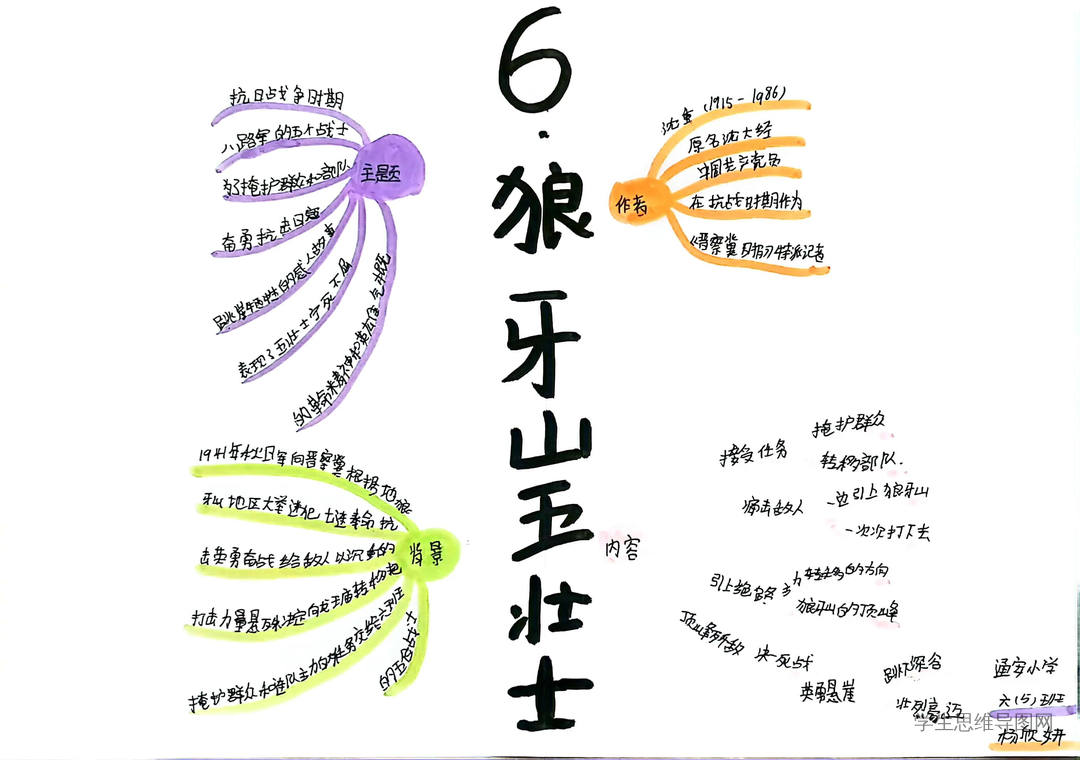 6.狼牙山五壮士
主题
抗日战争时期
八路军的五个战士
为了掩护群众和部队
奋勇抗击日寇
跳崖牺牲的感人故事
表现了五壮士宁死不屈
的革命精神和英雄气概
作者
沈重(1915-1986)
原名沈大经
中国共产党员
在抗战时期作为
《晋察冀日报》特派记者
背景
1941年秋日军向晋察冀根据地狼
牙山地区大举进犯 七连奉命抗
击英勇奋战给敌人以沉重的
打击力量悬殊决定向龙王庙转移把
掩护群众和连队主力的任务交给六班
的五名战士
内容
接受任务
掩护群众
转移部队.
痛击敌人
一边引上狼牙山
一次次打下去
引上绝路
主力转移的方向
狼牙山的顶峰
顶峰歼敌
决死战
英勇悬崖
跳深谷
壮烈豪迈
通安小学
六(5)班
杨欣妍
学生思维导图网